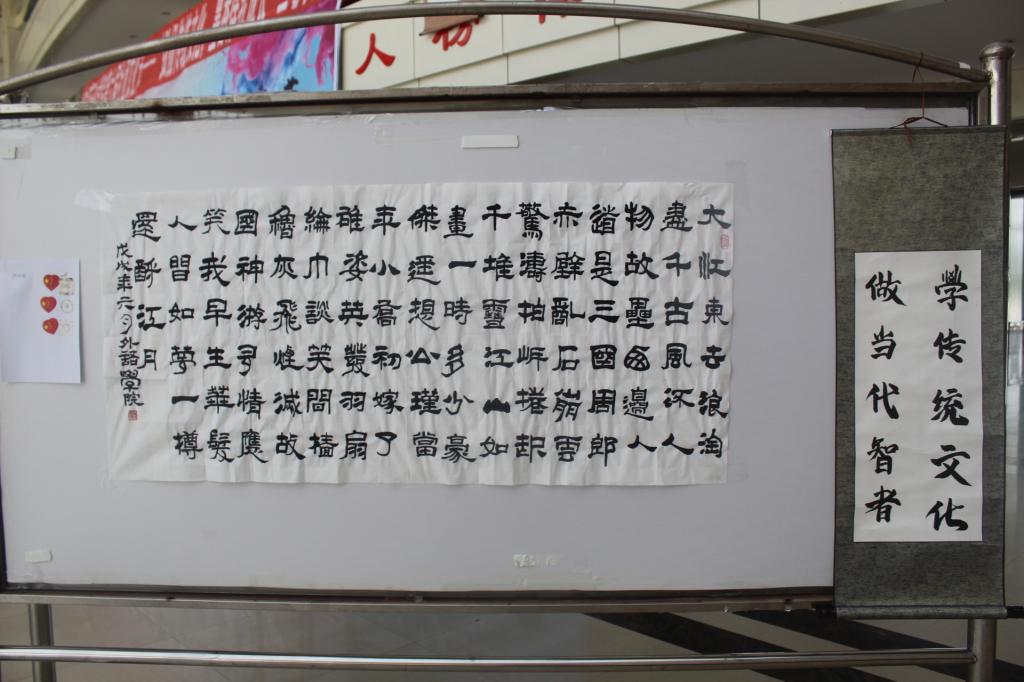 人
大江東去浪淘
盡千古風流人
物故壘西邊人
道是三國周郎
赤壁亂石崩雲
驚濤拍岸捲起
千堆雪江山如
畫一時多少豪
傑遥想公瑾當
年小喬初嫁了
雄姿英發羽扇
綸巾談笑間檣
櫓灰飛煙滅故
國神游多情應
笑我早生華髮
人間如夢一樽
還酹江月
戊戌年元月外語學院
學传统文化
做当代智者